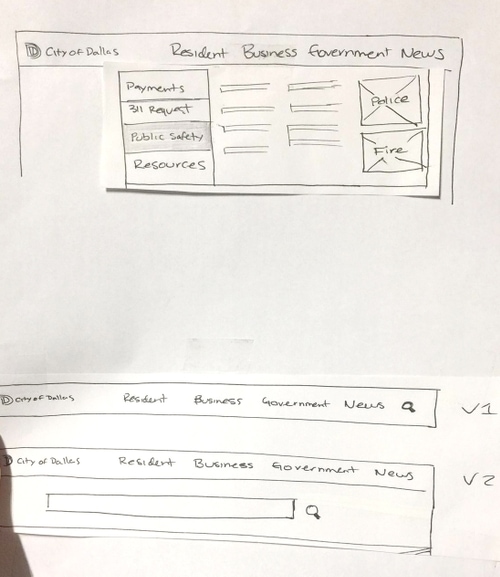 D City of Dallas Resident Business Government News
Payments
311 Request
Public Safety
Resources
Police
Fire
D City of Dallas Resident Business Government News V1
D City of Dallas Resident Business Government News V2